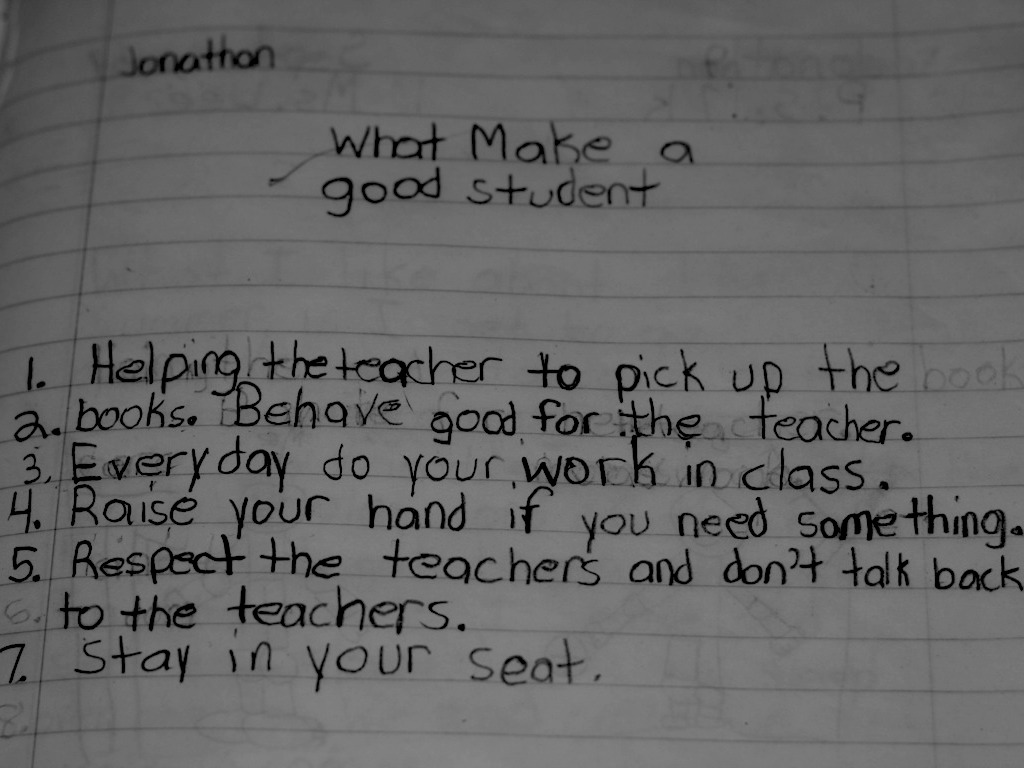 Jonathan
What Make a
good student
1. Helping the teacher to pick up the book
2. books. Behave good for the teacher.
3. Everyday do your work in class.
4. Raise your hand if you need something.
5. Respect the teachers and don't talk back
6. to the teachers.
7. Stay in your seat.
8.